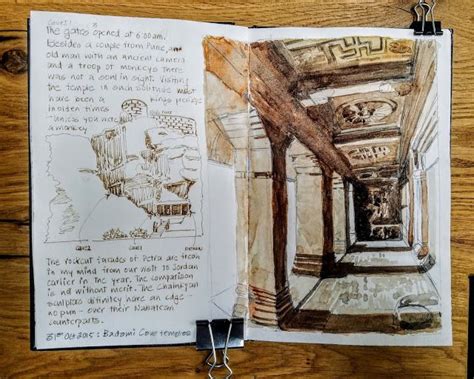 Cave 1
The gates opened at 6:00am.
Besides a couple from Pune, and
old man with an ancient camera
and a troop of monkeys there
was not a soul in sight. Visiting
the temple in such solitude must
have been a kings privilege
in olden times
- unless you were
a monkey
CAVE 2 CAVE 1
The rockcut facades of Petra are fresh
in my mind from our visit to Jordan
earlier in the year. The comparison
is not without merit. The Chalukyan
sculptors definitely have an edge -
no pun - over their Nabatean
counterparts.
31st Oct 2015 : Badami Cave temples